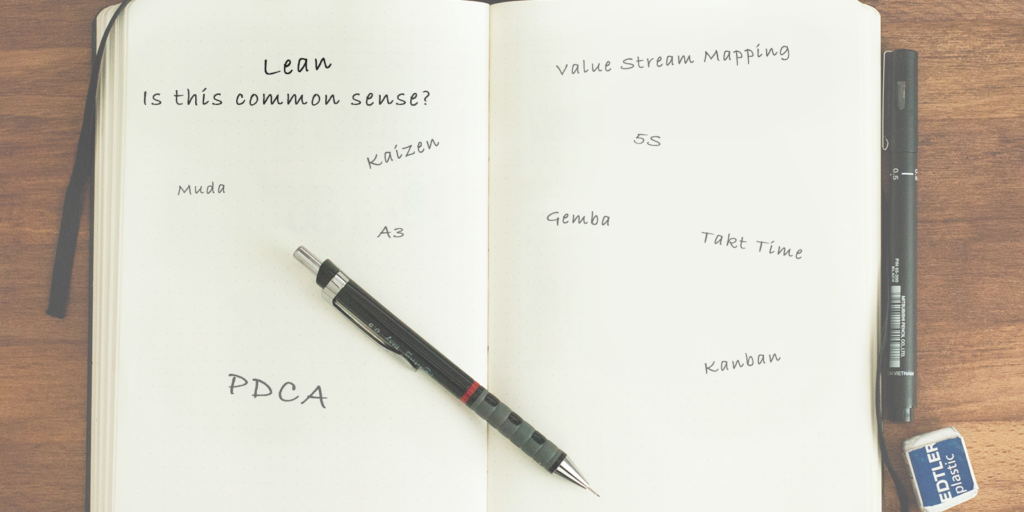 Lean
Is this common sense?
Kaizen
Muda
A3
PDCA
Value Stream Mapping
5S
Gemba
Takt Time
Kanban
0.5
MITSUBISHI PENCIL CO.,LTD
EDTLER
plastic